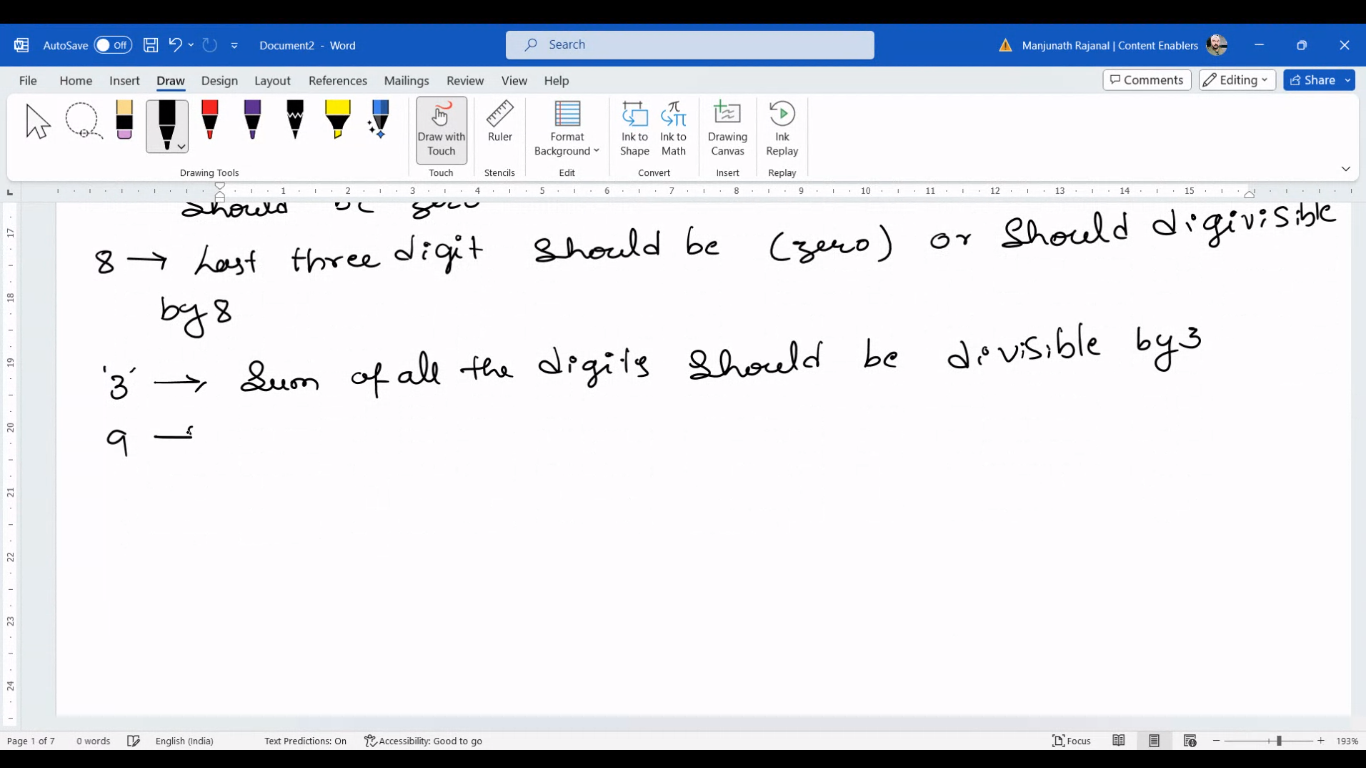 AutoSave Off Document2 - Word Search Manjunath Rajanal | Content Enablers
File Home Insert Draw Design Layout References Mailings Review View Help Comments Editing Share
Draw with Touch Ruler Format Background Ink to Shape Ink to Math Drawing Canvas Ink Replay
Drawing Tools Touch Stencils Edit Convert Insert Replay
1 2 3 4 5 6 7 8 9 10 11 12 13 14 15
17
18
19
20
21
22
23
24
should be zero
8 → Last three digit should be (zero) or should digivisible
by 8
'3' → Sum of all the digits should be divisible by 3
9 →
Page 1 of 7 0 words English (India) Text Predictions: On Accessibility: Good to go Focus 193%